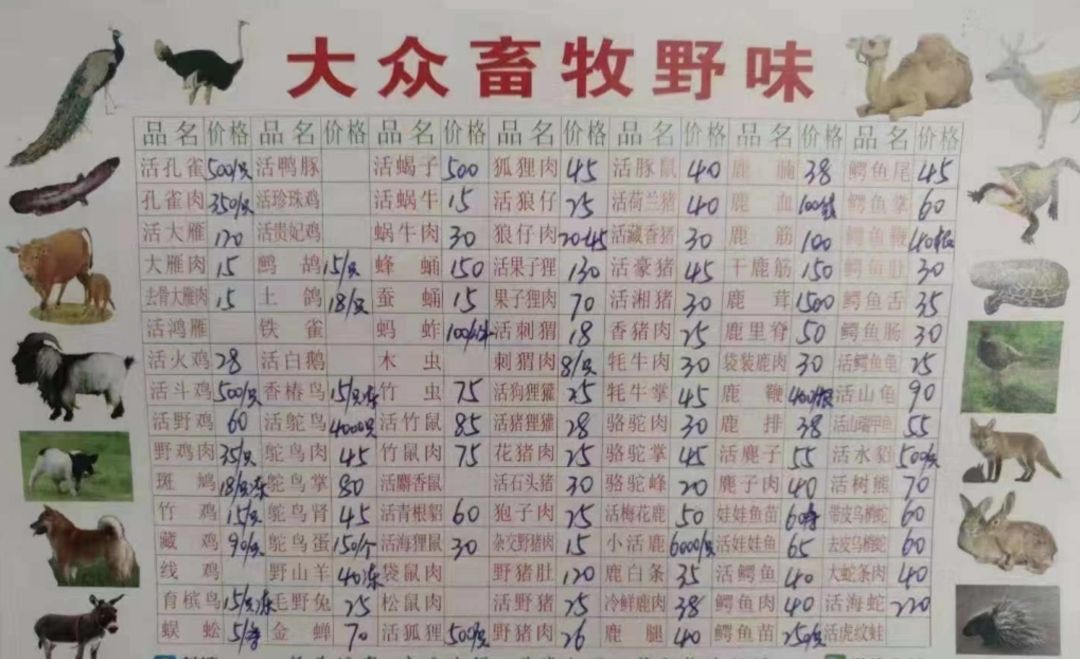 大众畜牧野味
品名 价格 品名 价格 品名 价格 品名 价格 品名 价格 品名 价格 品名 价格
活孔雀 500/只 活鸭豚 活蝎子 500 狐狸肉 45 活豚鼠 40 鹿 38 鳄鱼尾 45
孔雀肉 350/只 活珍珠鸡 活蜗牛 15 活狼仔 25 活荷兰猪 40 鹿血 鳄鱼掌 60
活大雁 120 活贵妃鸡 蜗牛肉 30 狼仔肉 20-45 活藏香猪 30 鹿筋 100 鳄鱼鞭
大雁肉 15 鹧鸪 15/只 蜂蛹 150 活果子狸 130 活豪猪 45 干鹿筋 150 鳄鱼肚 30
去骨大雁肉 15 土鸽 18/只 蚕蛹 15 果子狸肉 70 活湘猪 30 鹿茸 1500 鳄鱼舌 35
活鸿雁 铁雀 蚂蚱 活刺猬 18 香猪肉 25 鹿里脊 50 鳄鱼肠 30
活火鸡 28 活白鹅 木虫 刺猬肉 8/只 牦牛肉 30 袋装鹿肉 30 活鳄鱼龟 25
活斗鸡 500/只 香椿鸟 15/只冻 竹虫 75 活狗狸獾 25 牦牛掌 45 鹿鞭 活山龟 90
活野鸡 60 活鸵鸟 4000只 活竹鼠 85 活猪狸獾 28 骆驼肉 30 鹿排 38 55
野鸡肉 35/只 鸵鸟肉 45 竹鼠肉 75 花猪肉 25 骆驼掌 45 活麂子 55 活水貂 500/只
斑鸠 18/只冻 鸵鸟掌 80 活麝香鼠 活石头猪 30 骆驼峰 20 麂子肉 40 活树熊 70
竹鸡 15/只 鸵鸟肾 45 活青根貂 60 狍子肉 25 活梅花鹿 50 娃娃鱼苗 带皮乌梢蛇 60
藏鸡 90/只 鸵鸟蛋 150/个 活海狸鼠 30 杂交野猪肉 15 小活鹿 6000/只 活娃娃鱼 65 去皮乌梢蛇 60
线鸡 野山羊 40冻 袋鼠肉 野猪肚 120 鹿白条 35 活鳄鱼 40 大蛇条肉 40
育槟鸟 15/只冻 毛野兔 25 松鼠肉 活野猪 25 冷鲜鹿肉 38 鳄鱼肉 40 活海蛇 220
蜈蚣 金蝉 70 活狐狸 500/只 野猪肉 26 鹿腿 40 鳄鱼苗 250/只 活虎纹蛙